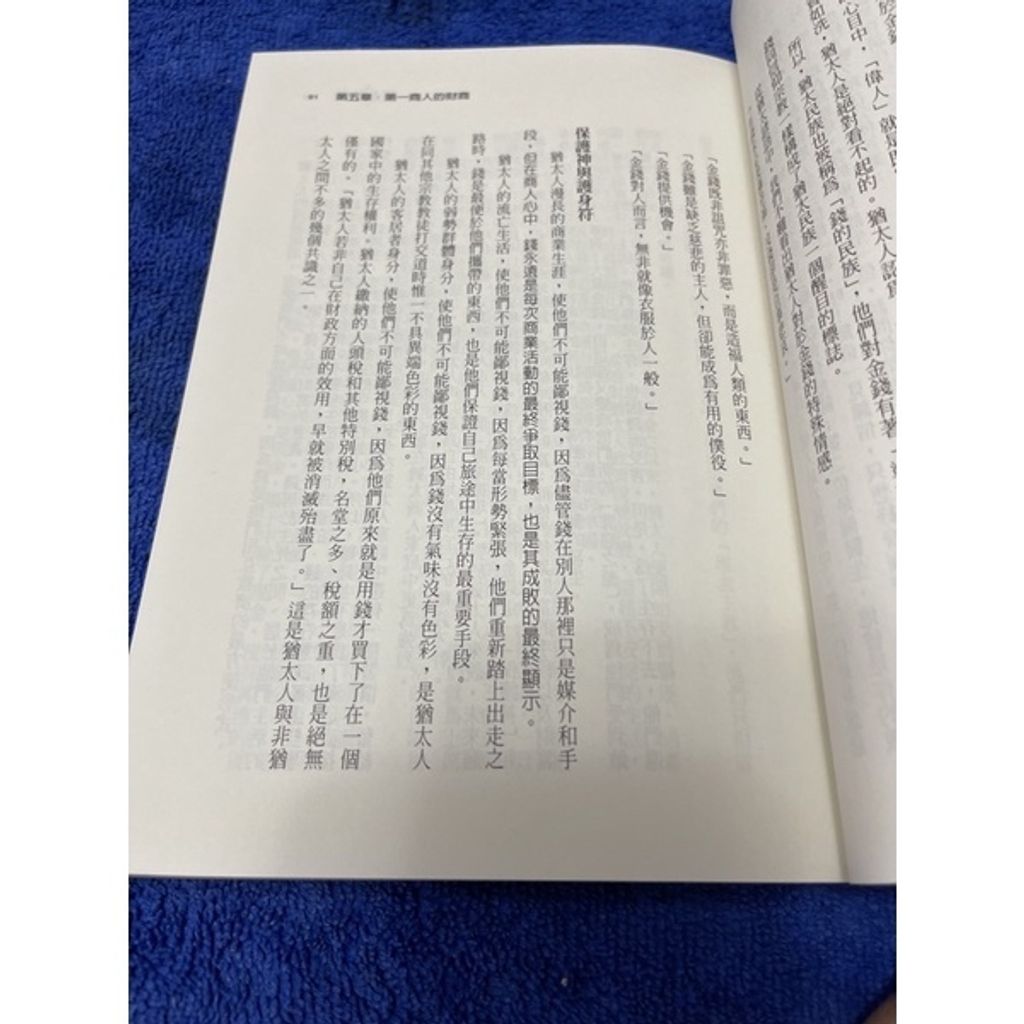 心目中，「偉人」就是
如洗，猶太人是絕對看不起的。猶太人認爲
所以，猶太民族也被稱爲「錢的民族」，他們對金錢有著一
一樣構成了猶太民族一個醒目的標誌。
我們不難看出猶太人對於金錢的特殊情感。
91 第五章．第一商人的財商
「金錢既非詛咒亦非罪惡，而是造福人類的東西。」
「金錢雖是缺乏慈悲的主人，但卻能成爲有用的僕役。」
「金錢提供機會。」
「金錢對人而言，無非就像衣服於人一般。」
保護神與護身符
猶太人漫長的商業生涯，使他們不可能鄙視錢，因爲儘管錢在別人那裡只是媒介和手
段，但在商人心中，錢永遠是每次商業活動的最終爭取目標，也是其成敗的最終顯示。
猶太人的流亡生活，使他們不可能鄙視錢，因爲每當形勢緊張，他們重新踏上出走之
路時，錢是最便於他們攜帶的東西，也是他們保證自己旅途中生存的最重要手段。
猶太人的弱勢群體身分，使他們不可能鄙視錢，因爲錢沒有氣味沒有色彩，是猶太人
在同其他宗教教徒打交道時惟一不具異端色彩的東西。
猶太人的客居者身分，使他們不可能鄙視錢，因爲他們原來就是用錢才買下了在一個
國家中的生存權利。猶太人繳納的人頭稅和其他特別稅，名堂之多、稅額之重，也是絕無
僅有的。「猶太人若非自己在財政方面的效用，早就被消滅殆盡了。」這是猶太人與非猶
太人之間不多的幾個共識之一。